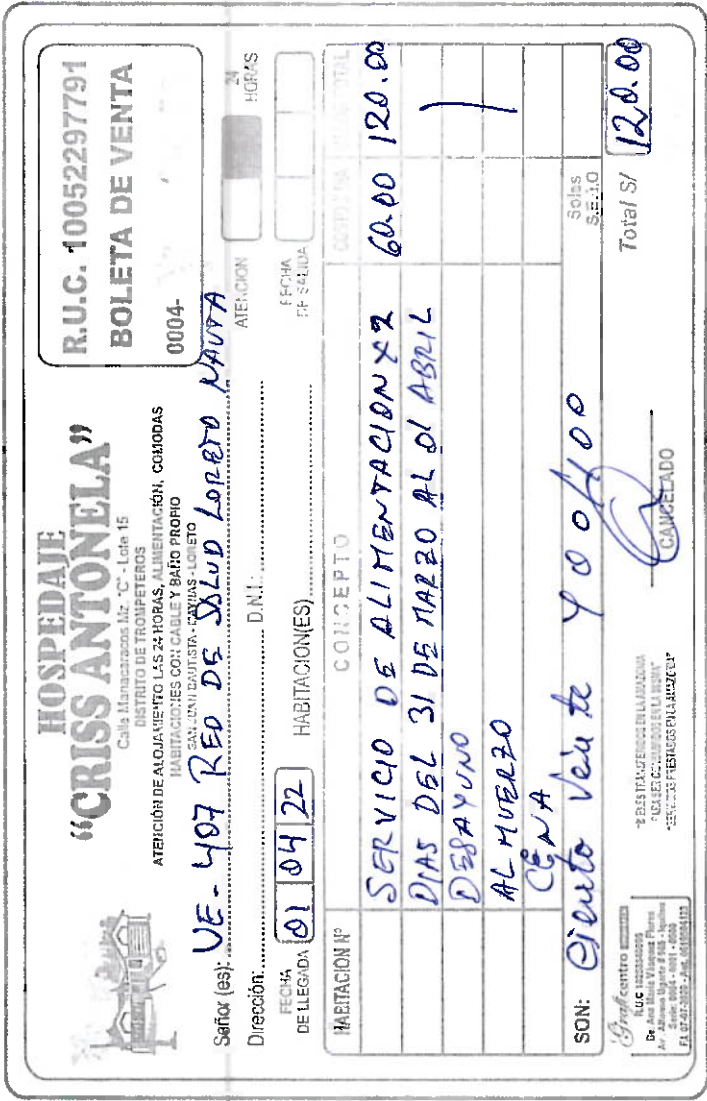 HOSPEDAJE
"CRISS ANTONELA"
Calle Manacaracos Mz. "C" - Lote 15
DISTRITO DE TROMPETEROS
ATENCIÓN DE ALOJAMIENTO LAS 24 HORAS, ALIMENTACIÓN, COMODAS
HABITACIONES CON CABLE Y BAÑO PROPIO
SAN JUAN BAUTISTA - MAYNAS - LORETO
R.U.C. 10052297791
BOLETA DE VENTA
0004-
Señor (es): UE-407 RED DE SALUD LORETO NAUTA
Dirección: D.N.I.:
ATENCION 24 HORAS
FECHA DE LLEGADA 01 04 22 HABITACION(ES)
FECHA DE SALIDA
HABITACION Nº CONCEPTO TOTAL
SERVICIO DE ALIMENTACION X 2 60.00 120.00
DIAS DEL 31 DE MARZO AL 01 ABRIL
DESAYUNO
ALMUERZO
CENA
SON: Ciento Veinte y 00/100 Soles
Total S/ 120.00
CANCELADO
Grafi centro
De Ana María Vásquez Flores
"BIENES TRANSFERIDOS EN LA AMAZONIA
PARA SER CONSUMIDOS EN LA MISMA"
"SERVICIOS PRESTADOS EN LA AMAZONIA"